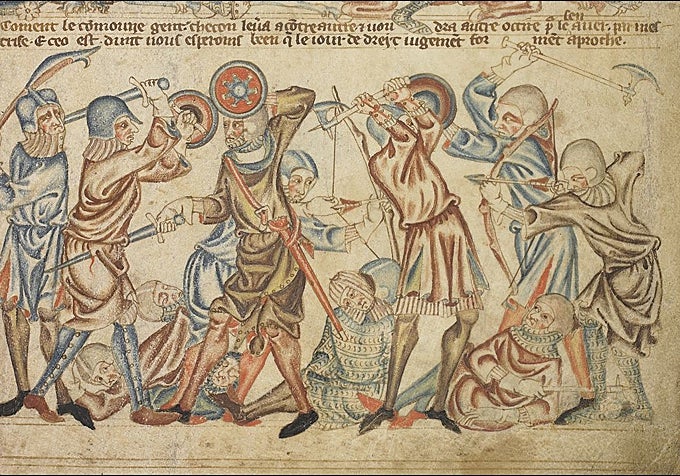 sen
Coment le cōmoune gent· checon leūa a cōtre autre ⁊ uou dra autre occire p̄ le auer· par mes
trise· E ceo est· dunt nous esperoms been q̄ le iour· de dreyt iugemet for met aproche·